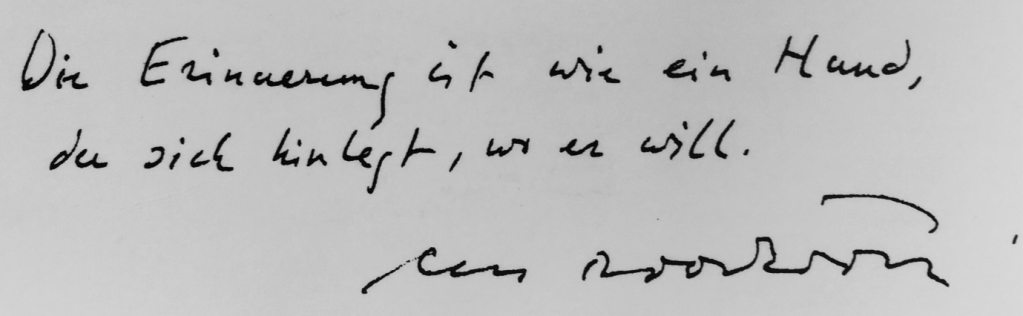 Die Erinnerung ist wie ein Hund,
der sich hinlegt, wo er will.
Cees Nooteboom